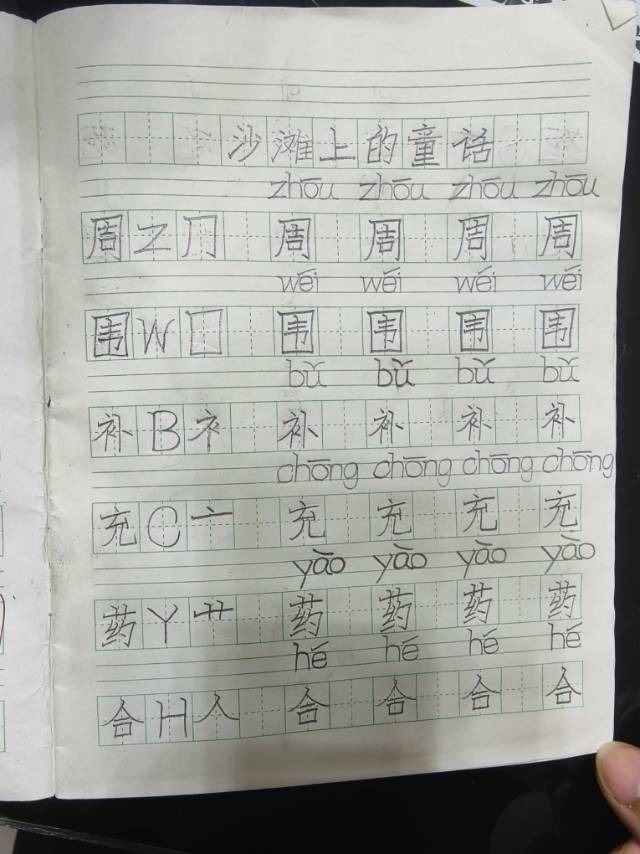 沙滩上的童话
zhōu zhōu zhōu zhōu
周 Z 冂 周 周 周 周
wéi wéi wéi wéi
围 W 囗 围 围 围 围
bǔ bǔ bǔ bǔ
补 B 衤 补 补 补 补
chōng chōng chōng chōng
充 C 亠 充 充 充 充
yāo yāo yāo yāo
药 Y 艹 药 药 药 药
hé hé hé hé
合 H 人 合 合 合 合